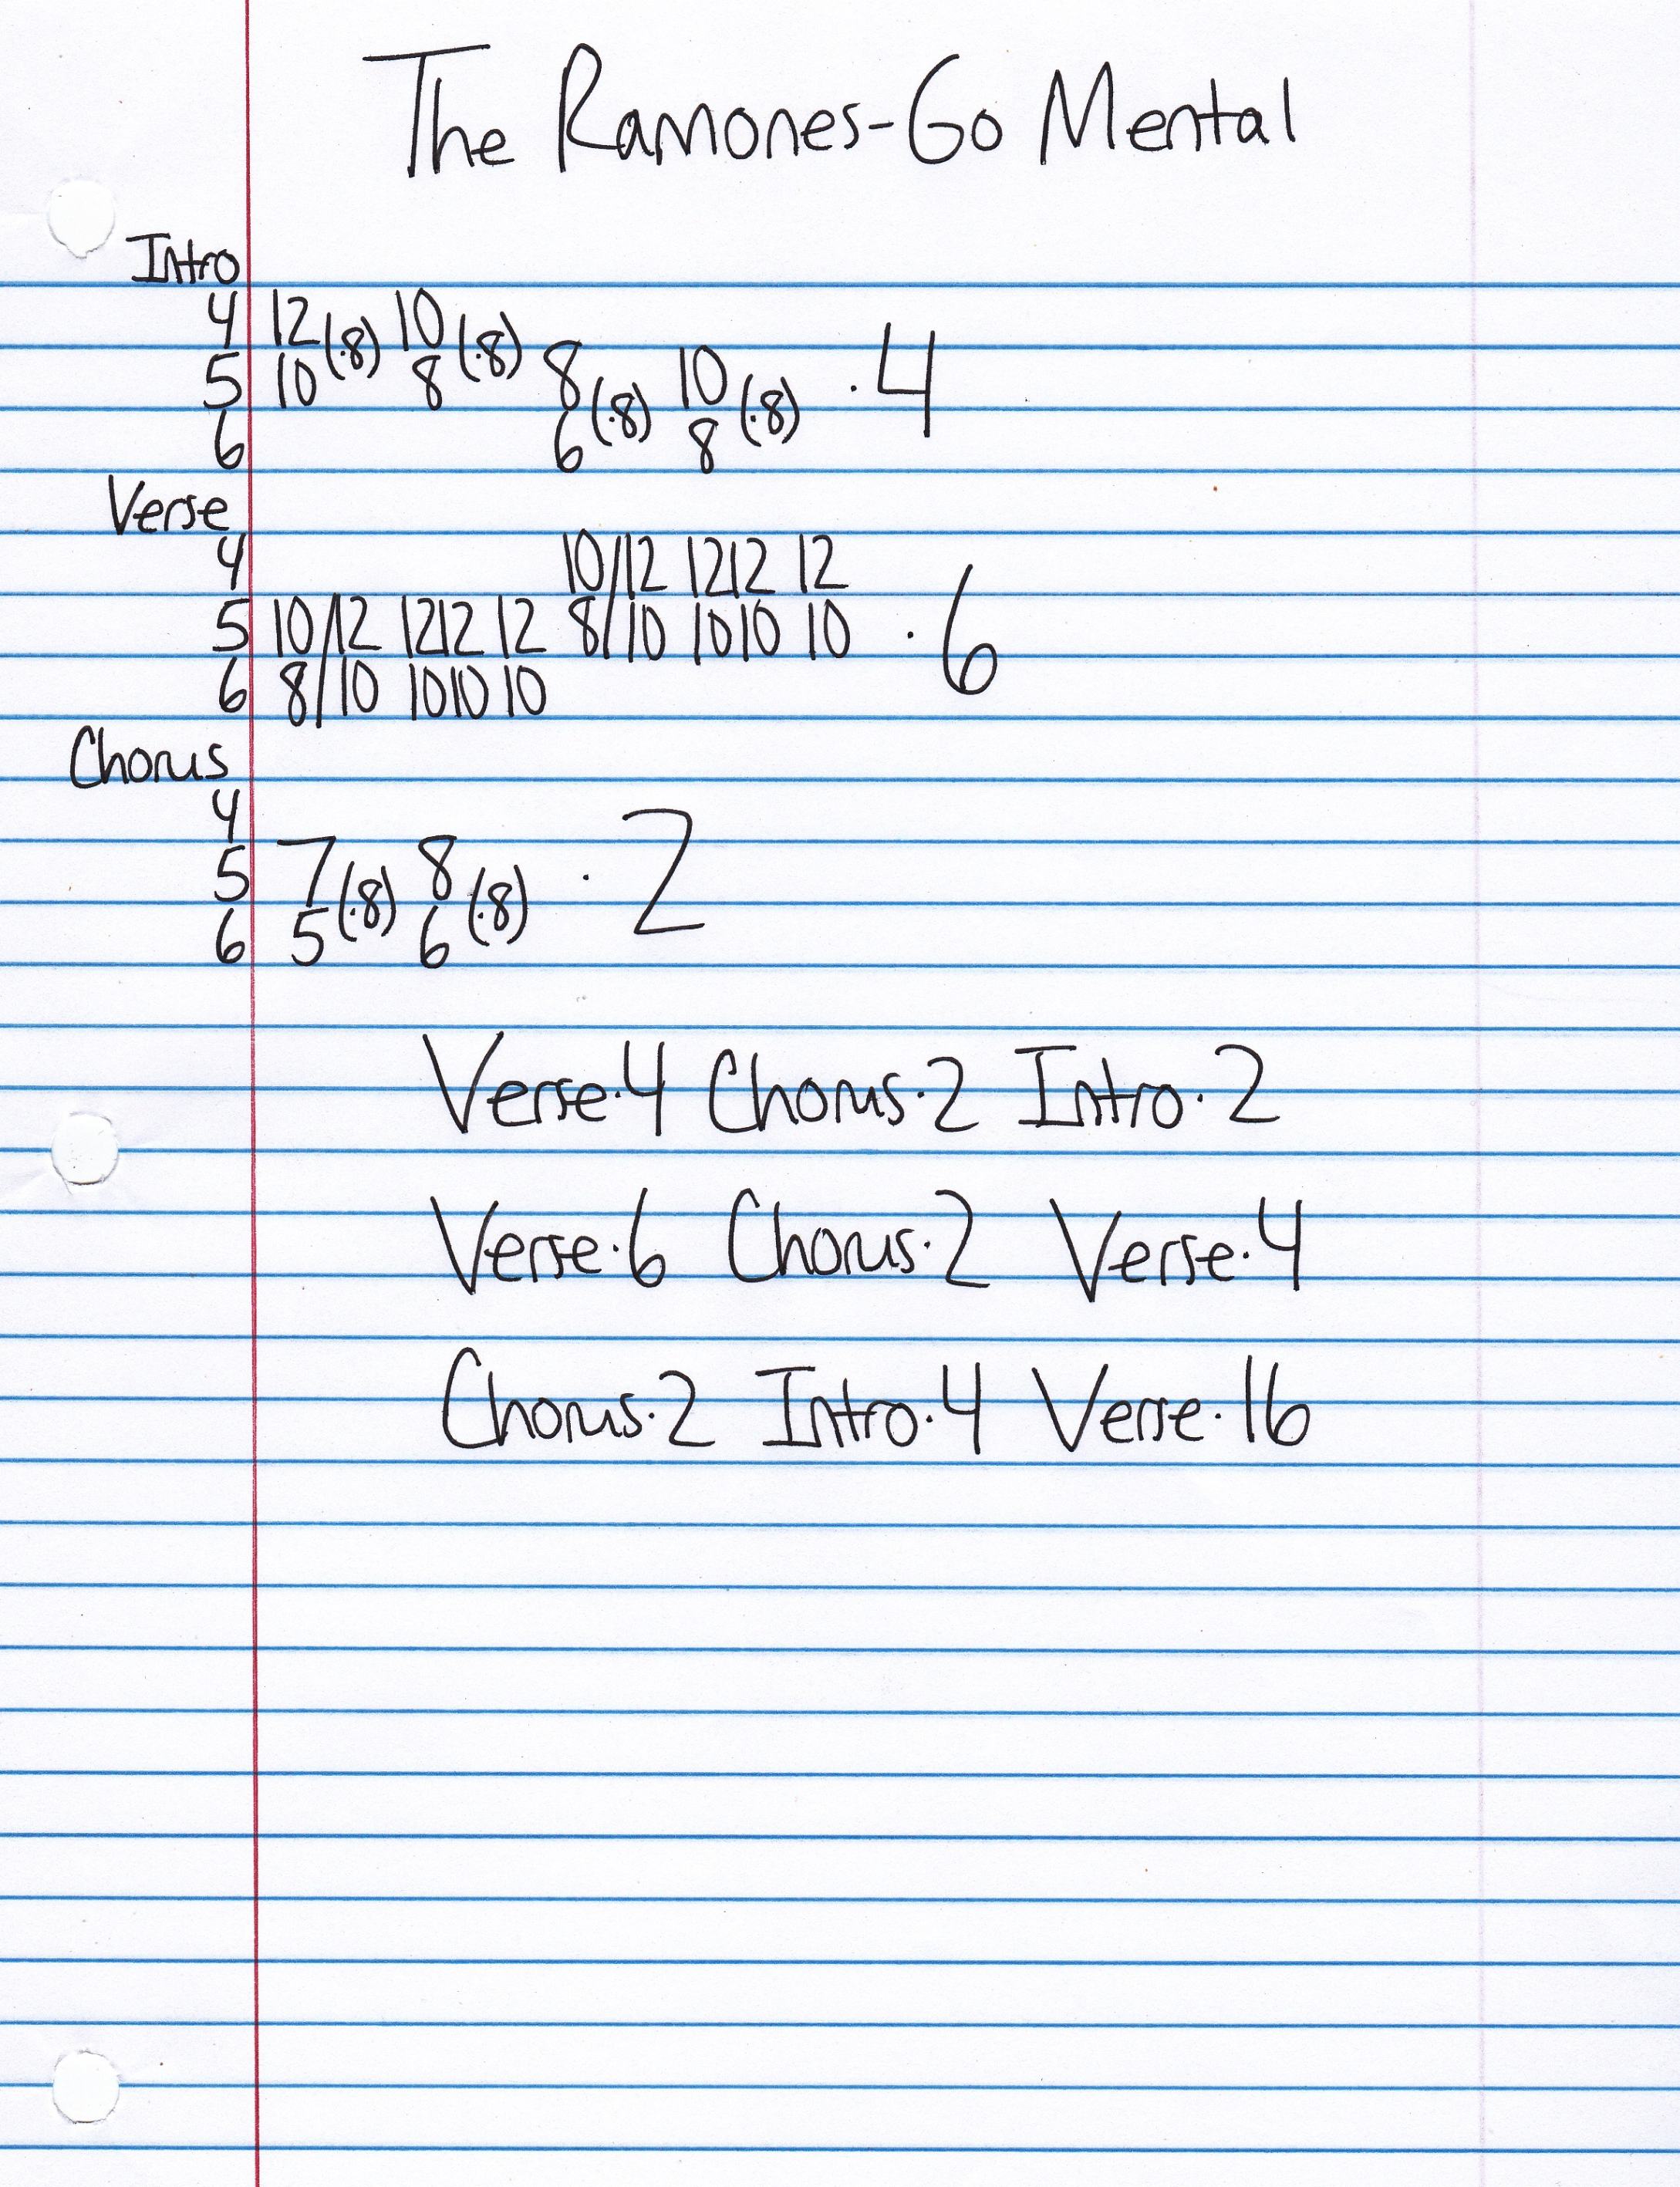 The Ramones-Go Mental
Intro
4 12(·8) 10(·8)
5 10 8 8(·8) 10(·8) ·4
6 6 8
Verse
4 10/12 1212 12
5 10/12 1212 12 8/10 1010 10 ·6
6 8/10 1010 10
Chorus
4
5 7(·8) 8(·8) ·2
6 5 6
Verse·4 Chorus·2 Intro·2
Verse·6 Chorus·2 Verse·4
Chorus·2 Intro·4 Verse·16